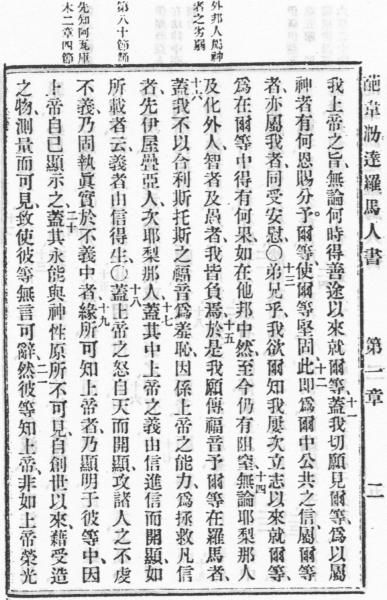 葩韋泐達羅馬人書 第一章 二
我上帝之旨、無論何時得善途以來就爾等、十一蓋我切願見爾等、為以屬
神者有何恩賜分予爾等、使爾等堅固、十二此即為爾中公共之信屬爾等
者、亦屬我者、同受安慰、〇十三弟兄乎、我欲爾知我屢次立志以來就爾等
為在爾等中得有何果如在他邦中然至今仍有阻窒、十四無論耶梨那人
及化外人智者及愚者我皆負焉、十五於是我願傳福音予爾等在羅馬者、
十六蓋我不以合利斯托斯之福音為羞恥、因係上帝之能力、為拯救凡信
者、先伊屋疊亞人、次耶梨那人、十七蓋其中上帝之義由信進信而開顯、如
所載者云、義者由信得生、〇十八蓋上帝之怒自天而開顯、攻諸人之不虔
不義乃固執真實於不義中者、十九緣所可知上帝者乃顯明于彼等中、因
上帝自己顯示之、二十蓋其永能與神性原所不可見、自創世以來、藉受造
之物測量而可見、致使彼等無言可辭、二一然彼等知上帝、非如上帝榮光
外邦人屬神
者之劣
第八十節誦
先知阿瓦庫
木二章四節